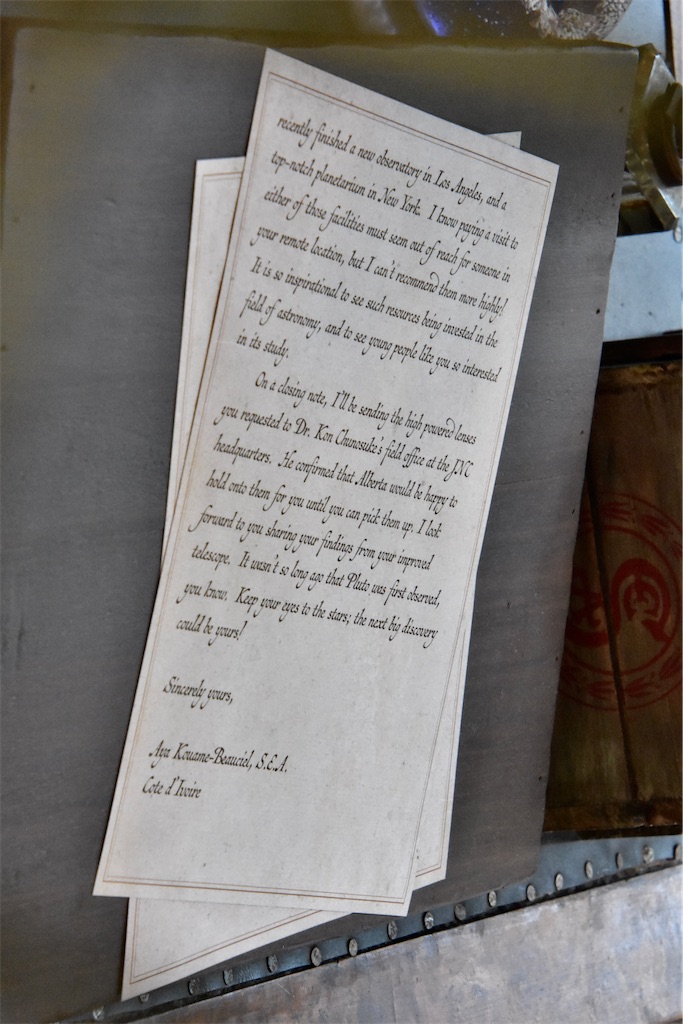 recently finished a new observatory in Los Angeles, and a
top-notch planetarium in New York. I know paying a visit to
either of those facilities must seem out of reach for someone in
your remote location, but I can't recommend them more highly!
It is so inspirational to see such resources being invested in the
field of astronomy, and to see young people like you so interested
in its study.
On a closing note, I'll be sending the high powered lenses
you requested to Dr. Kon Chunosuke's field office at the JNC
headquarters. He confirmed that Alberta would be happy to
hold onto them for you until you can pick them up. I look
forward to you sharing your findings from your improved
telescope. It wasn't so long ago that Pluto was first observed,
you know. Keep your eyes to the stars; the next big discovery
could be yours!
Sincerely yours,
Aya Kouame-Beauciel, S.E.A.
Cote d'Ivoire